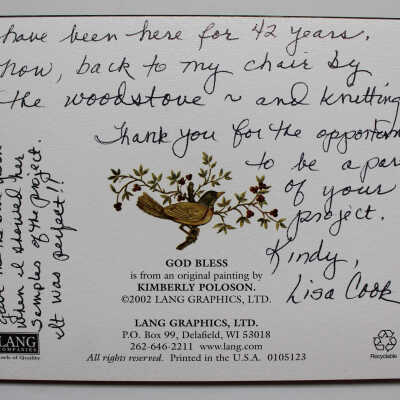 have been here for 42 years.
now, back to my chair by
the woodstove ~ and knitting
Thank you for the opportun
to be a par
of your
project.
Kindy,
Lisa Cook
when I showed her
samples of the project.
It was perfect!!
GOD BLESS
is from an original painting by
KIMBERLY POLOSON.
©2002 LANG GRAPHICS, LTD.
LANG GRAPHICS, LTD.
P.O. Box 99, Delafield, WI 53018
262-646-2211 www.lang.com
All rights reserved. Printed in the U.S.A. 0105123
LANG
COMPANIES
Mark of Quality
Recyclable